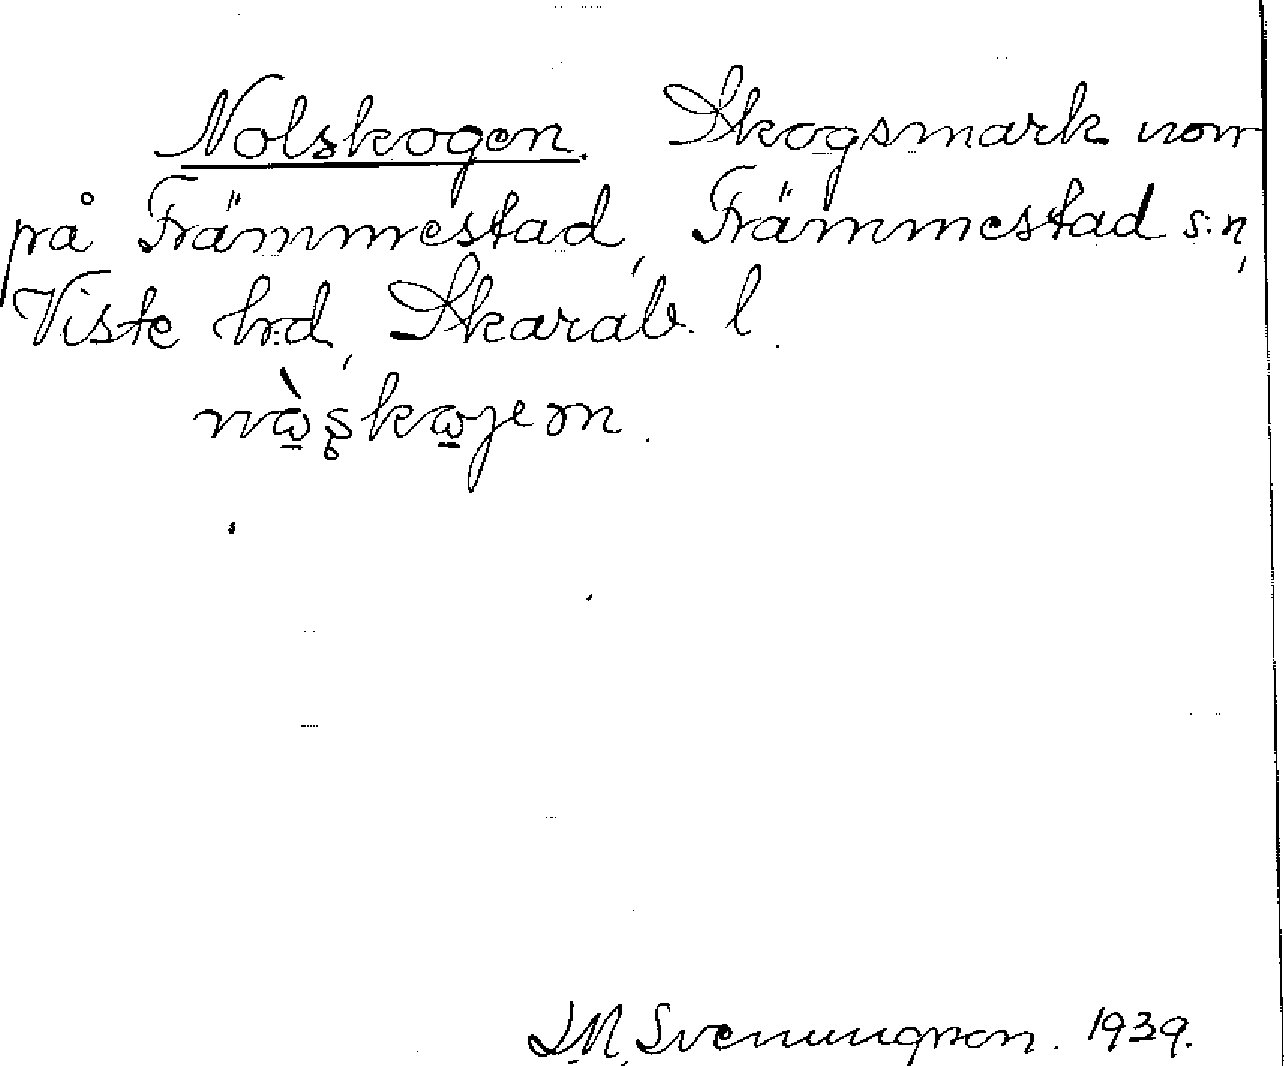 Nolskogen. Skogsmark norr
på Främmestad, Främmestad s:n,
Viste h:d, Skarab. l.
J.M. Svenungsson. 1939.